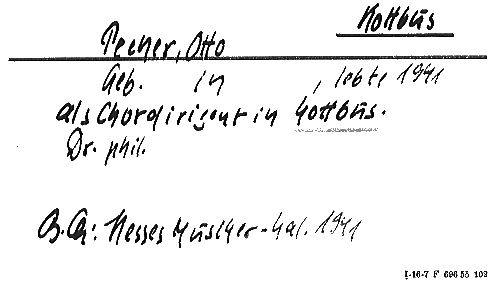 Kottbus
Pecher, Otto
Geb. in , lebte 1941
als Chordirigent in Kottbus.
Dr. phil.
B. Qu: Hesses Musiker-Kal. 1941
I-16-7 F 696 55 103